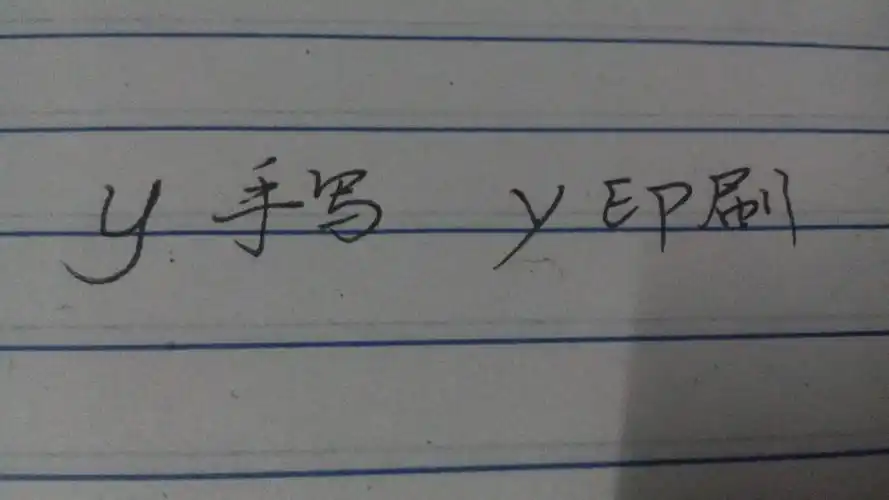 y 手写 y 印刷